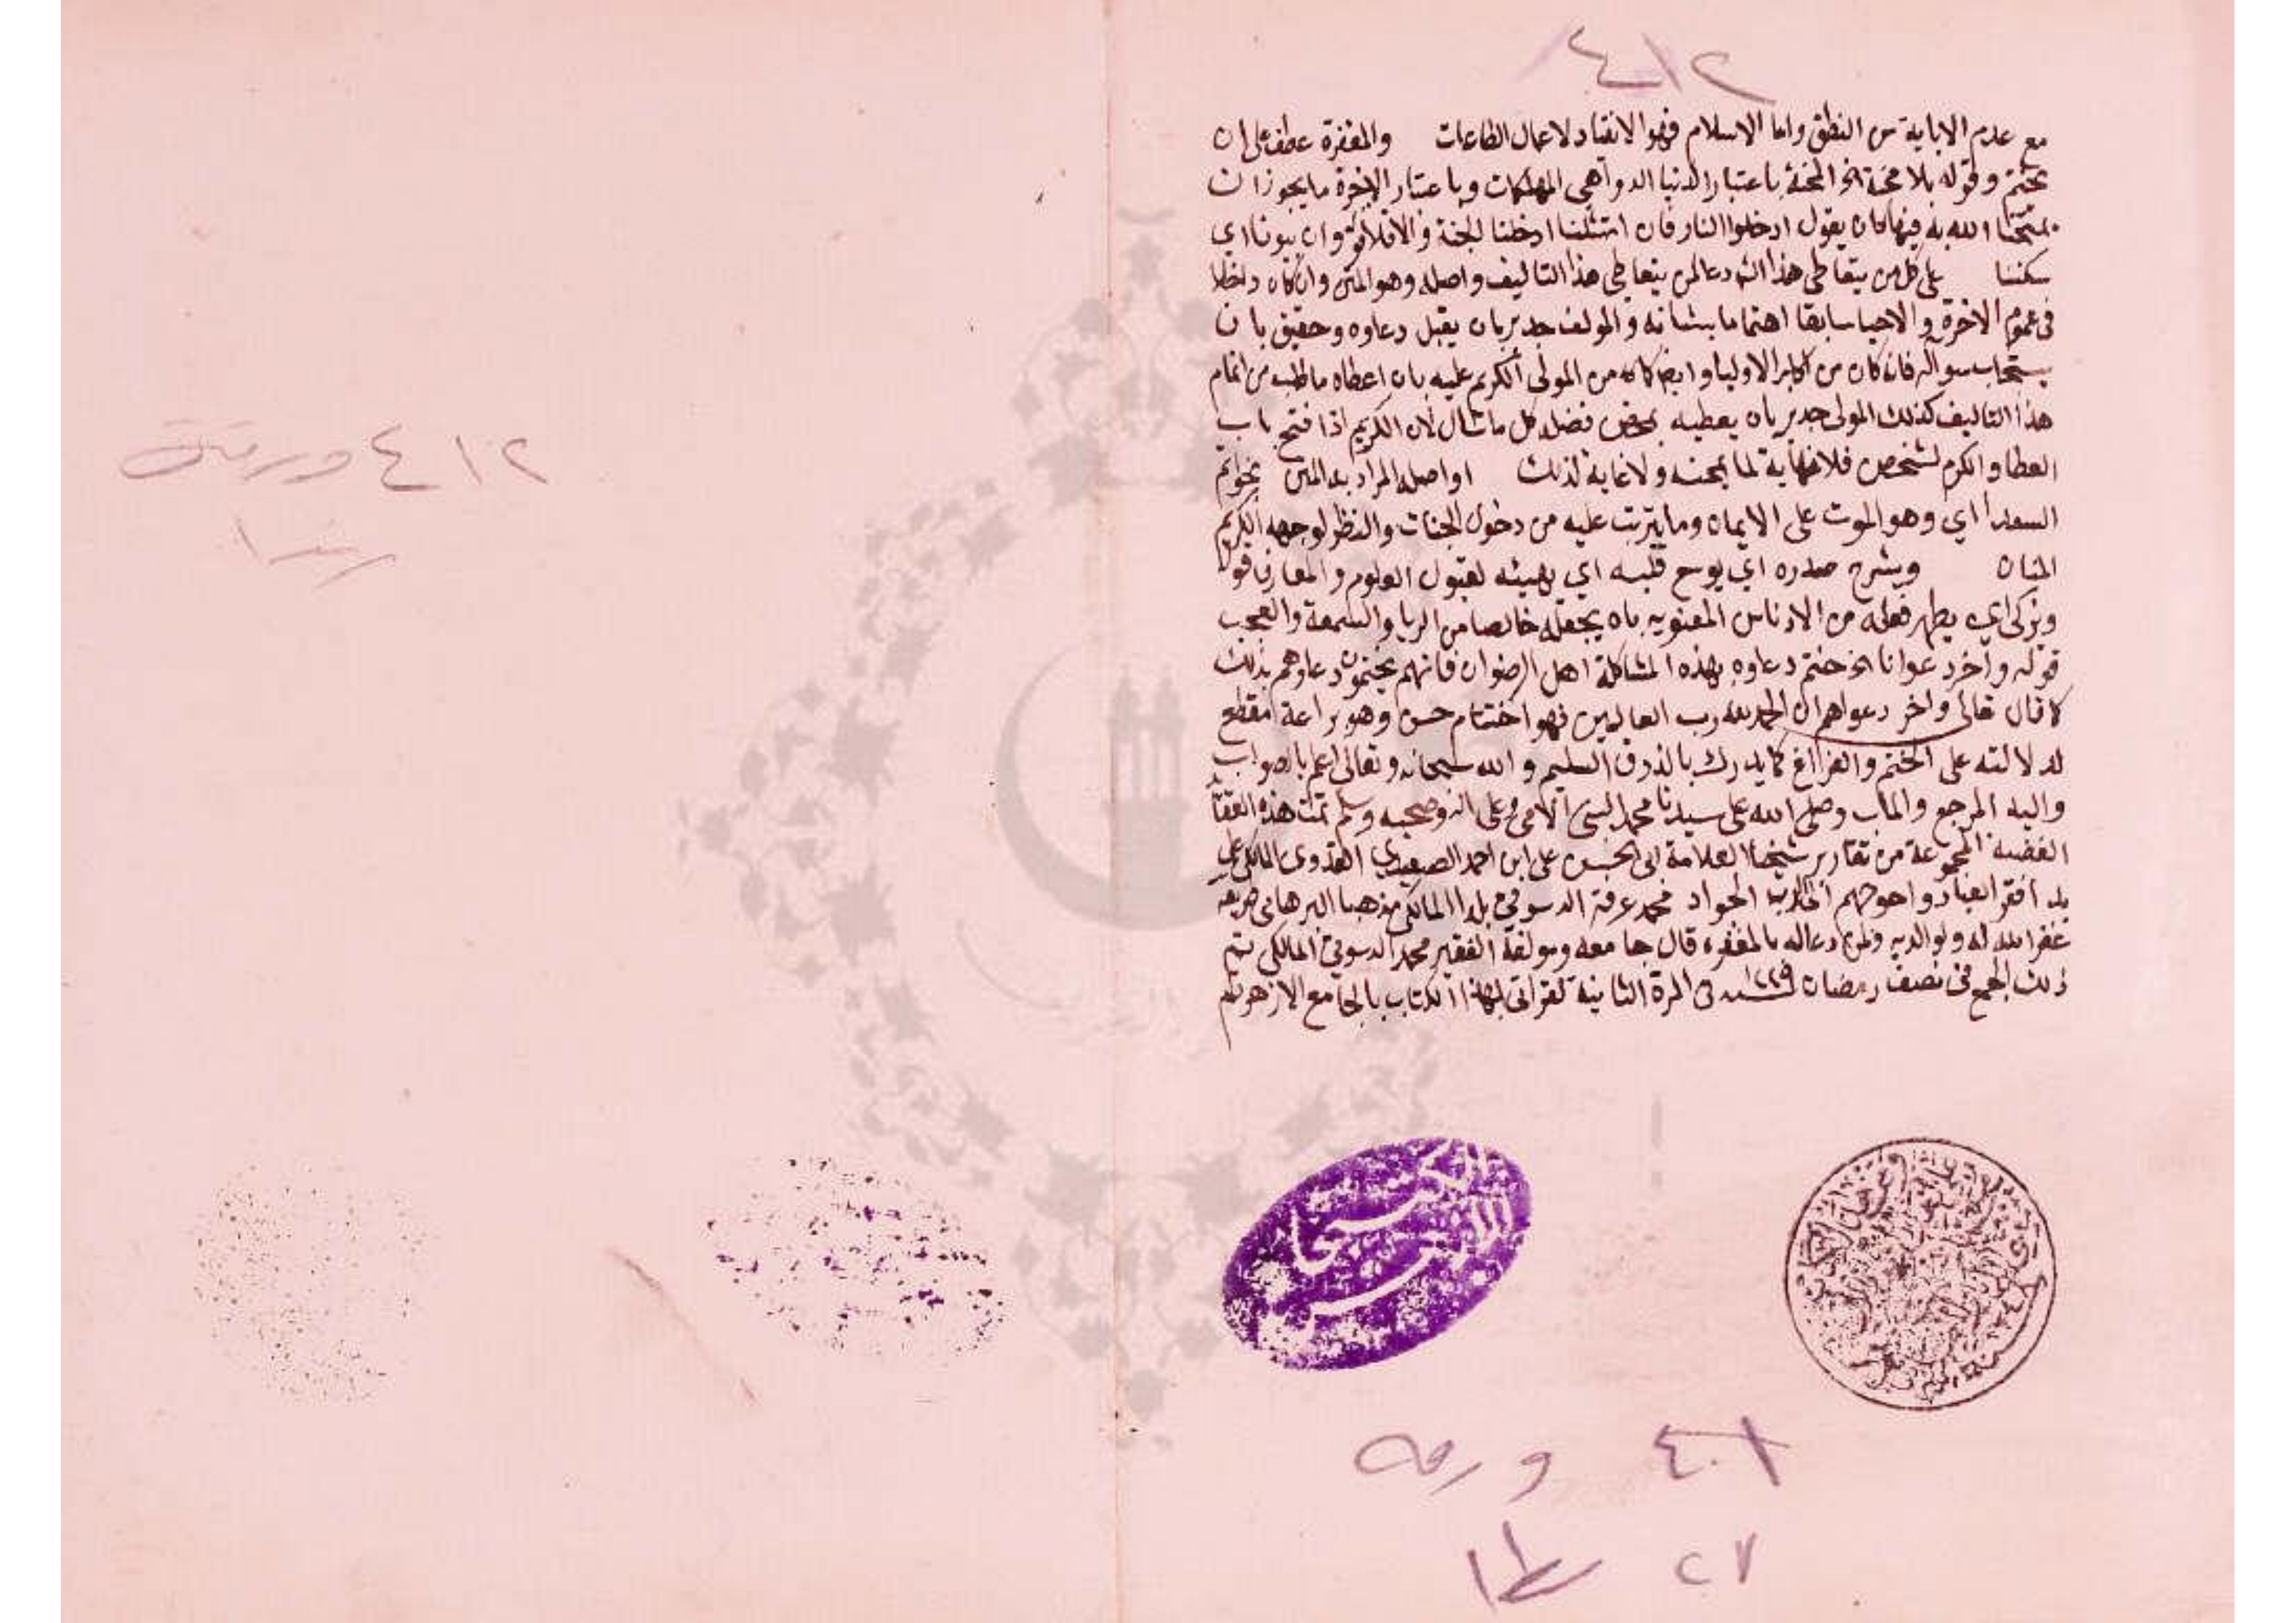 ٤١٢
مع عدم الاباية من النطق واما الاسلام فهو الانقياد لاعمال الطاعات والمغفرة عطف على ان
يختم وقوله بلا محنة الخ المحنة باعتبار الدنيا الدواهي المهلكات وباعتبار الاخرة ما يجوز ان
يمتحننا الله به فيها كان يقول ادخلوا النار فان امتثلنا ادخلنا الجنة والا فلا قوله وان يبونا اي
يسكننا على كل من يتعاطى هذا الشرد عا لمن يتعاطى هذا التاليف واصله وهو المتن وان كان داخلا
في عموم الاخرة والاحيا سابقا اهتماما بشانه والمولف جدير بان يقبل دعاوه وحقيق بان
يستجاب سواله فانه كان من اكابر الاوليا وايضا كانه من المولى الكريم عليه بان اعطاه ما طلب من اتمام
هذا التاليف كذلك المولى جدير بان يعطيه بمحض فضله كل ما سال لان الكريم اذا فتح باب
العطا والكرم لشخص فلا نهاية لما يمحنه ولا غاية لذلك او اصله المراد به المتن بخواتم
السعدا اي وهو الموت على الايمان وما يترتب عليه من دخول الجنات والنظر لوجهه الكريم
المنان ويشرح صدره اي يوسع قلبه اي يهيئه لقبول العلوم والمعارف قوله
ويزكى اي يطهر فعله من الادناس المعنويه بان يجعله خالصا من الريا والسمعة والعجب
قوله واخر دعوانا الخ ختم دعاوه بهذه المشاكلة اهل الرضوان فانهم يختمون دعاوهم بذلك
كما قال تعالى واخر دعواهم ان الحمد لله رب العالمين فهو اختتام حسن وهو براعة مقطع
لدلالته على الختم والفراغ كما يدرك بالذوق السليم والله سبحانه وتعالى اعلم بالصواب
واليه المرجع والماب وصلى الله على سيدنا محمد النبي الامي وعلى اله وصحبه وسلم تمت هذه
المجموعة من تقارير شيخنا العلامة ابى الحسن على ابن احمد الصعيدي العدوى المالكي على
يد افقر العباد واحوجهم الى الجواد محمد عرفة الدسوقي بلدا المالكى مذهبا البرهاني
غفر الله له ولوالديه ولمن دعا له بالمغفرة قال جامعه ومولفه الفقير محمد الدسوقي المالكي تم
ذلك الجمع في نصف رمضان سنة في المرة الثانية لقراتى لهذا الكتاب بالجامع الازهر تم
٤١٢ ورقة
٤٠١ ورقه
٢٧